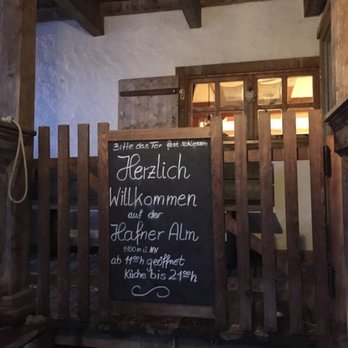 Bitte das Tor fest schliessen
Herzlich
Willkommen
auf der
Hafner Alm
1100 m ü NN
ab 11ºº h geöffnet
Küche bis 21ºº h